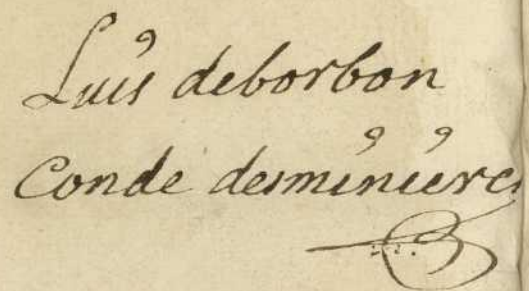 Luis deborbon
Conde desminieres